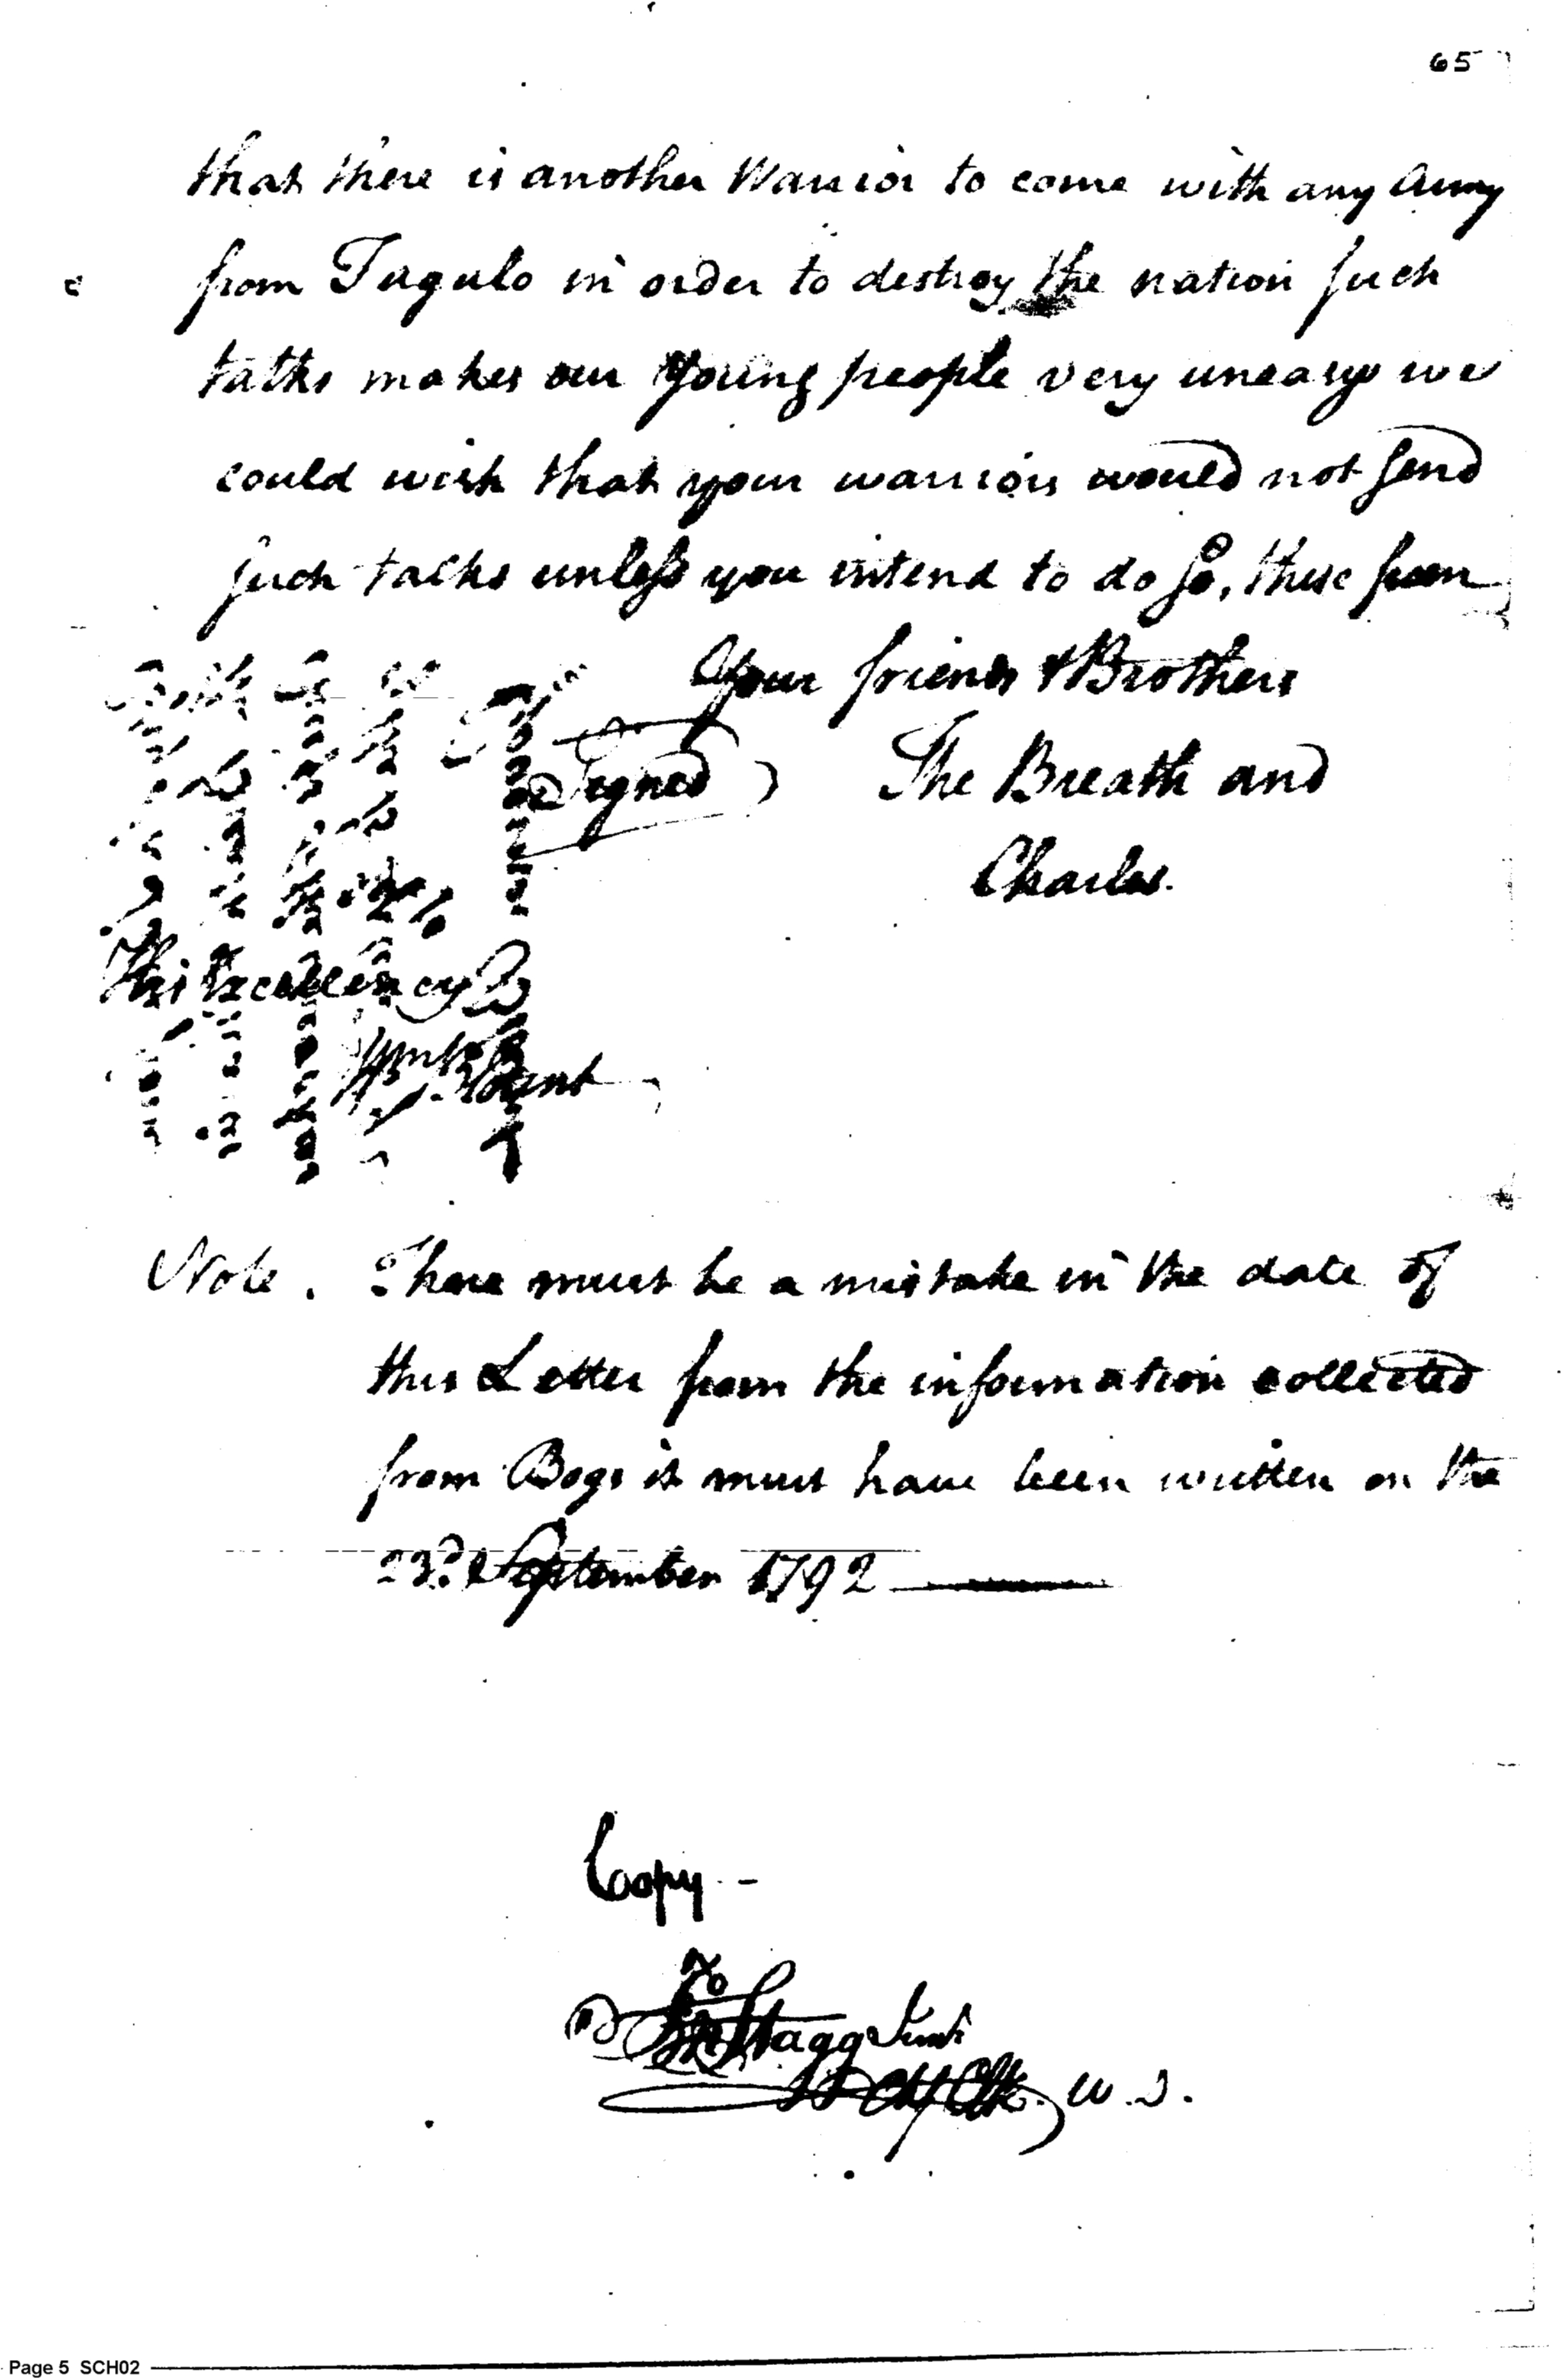 65
that there is another Warrior to come with any Army
from Tugulo in order to destroy the nation such
talks makes our Young people very uneasy we
could wish that your warriors would not send
such talks unless you intend to do so, these from
Your friends & Brothers
Signed) The Breath and
Charles.
His Excellency
Wm Blount
Note. There must be a mistake in the date of
this Letter from the information collected
from Bogs it must have been written on the
23d. September 1792
Copy -
Jno Stagg Junr
W. D.
Page 5 SCH02